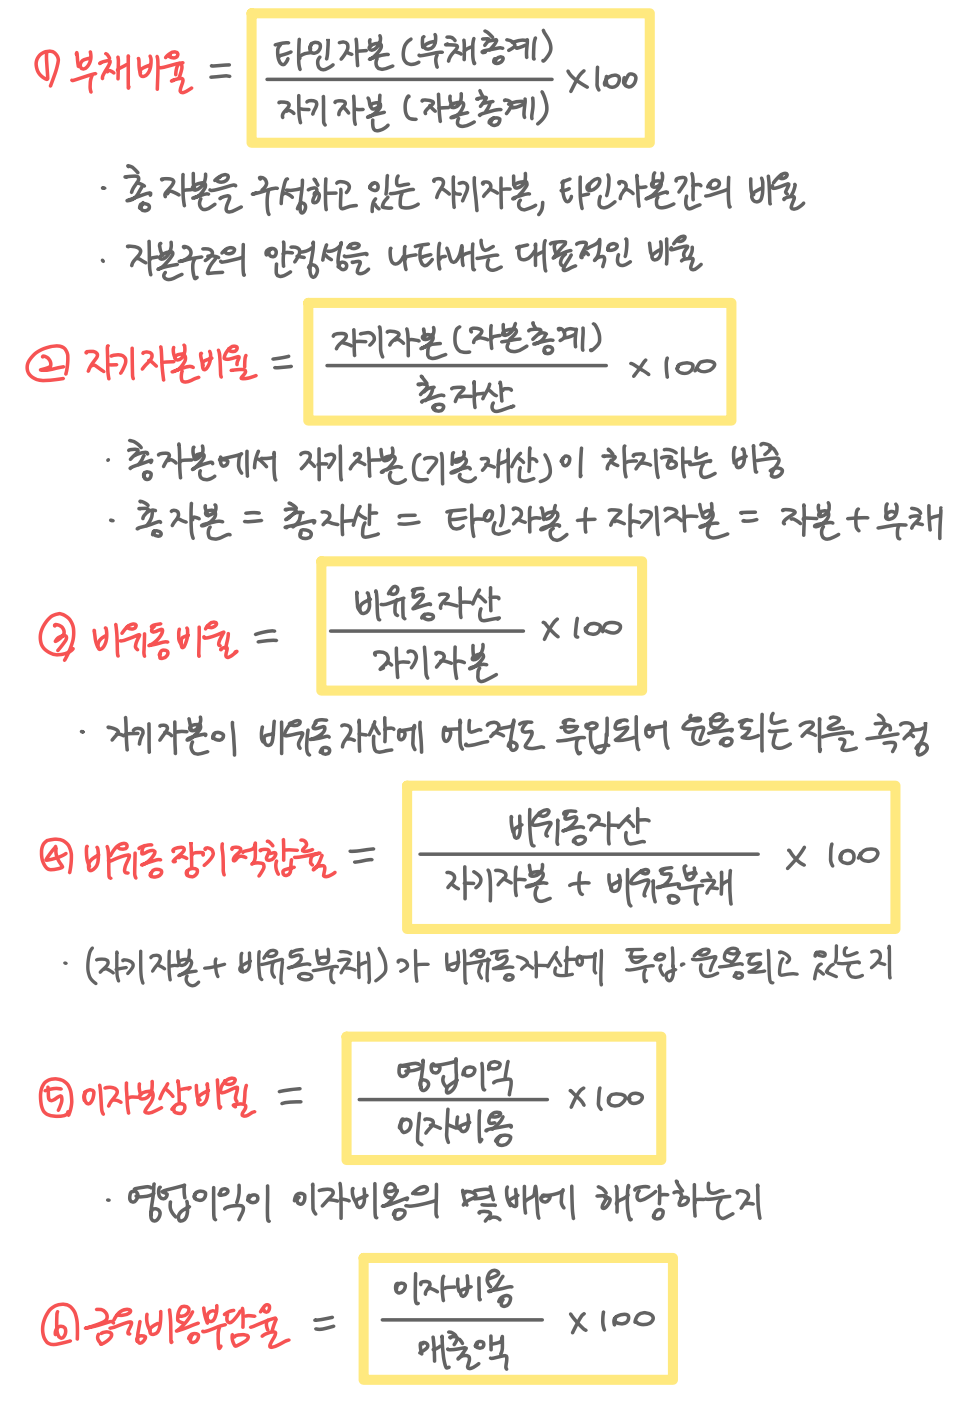 ① 부채비율 = 타인자본(부채총계) / 자기자본(자본총계) ×100
· 총 자본을 구성하고 있는 자기자본, 타인자본간의 비율
· 자본구조의 안정성을 나타내는 대표적인 비율
② 자기자본비율 = 자기자본(자본총계) / 총자산 × 100
· 총자본에서 자기자본(기본재산)이 차지하는 비중
· 총자본 = 총자산 = 타인자본 + 자기자본 = 자본 + 부채
③ 비유동비율 = 비유동자산 / 자기자본 × 100
· 자기자본이 비유동자산에 어느정도 투입되어 운용되는 지를 측정
④ 비유동장기적합률 = 비유동자산 / 자기자본 + 비유동부채 × 100
· (자기자본 + 비유동부채)가 비유동자산에 투입·운용되고 있는지
⑤ 이자보상비율 = 영업이익 / 이자비용 ×100
· 영업이익이 이자비용의 몇 배에 해당하는지
⑥ 금융비용부담율 = 이자비용 / 매출액 ×100